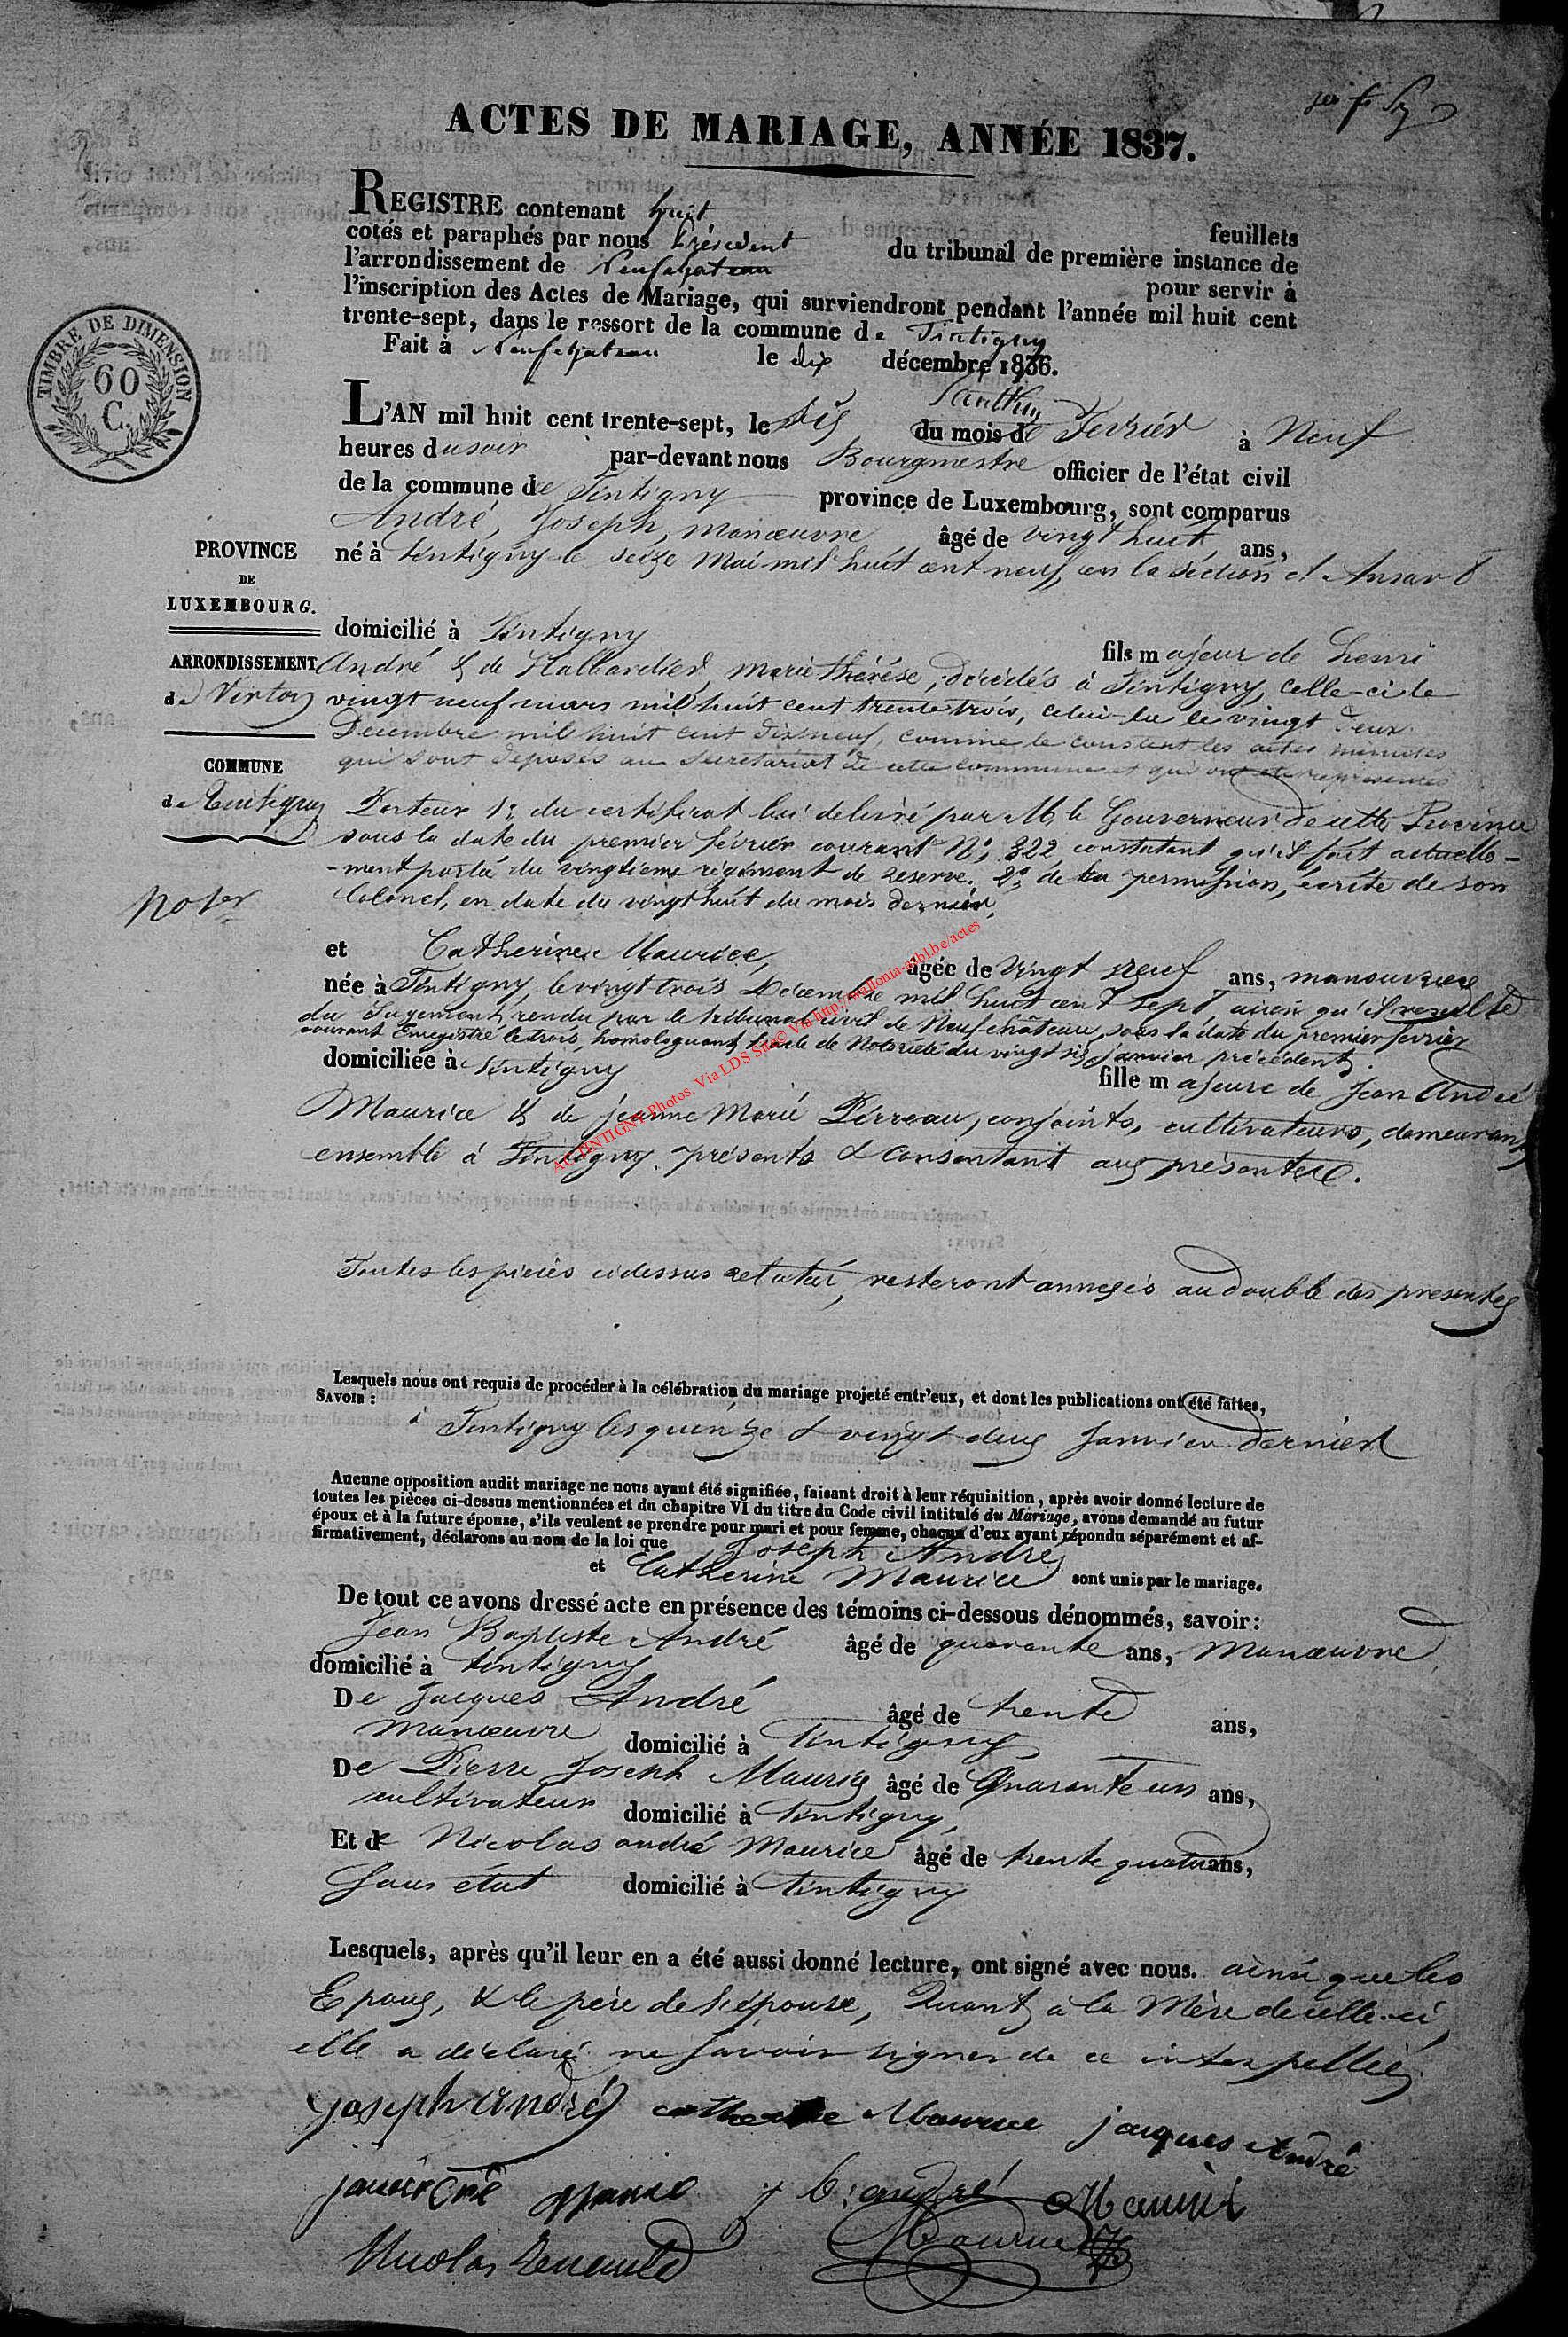 ACTES DE MARIAGE, ANNÉE 1837.
REGISTRE contenant huit feuillets
cotés et paraphés par nous Président du tribunal de première instance de
l'arrondissement de Neufchateau pour servir à
l'inscription des Actes de Mariage, qui surviendront pendant l'année mil huit cent
trente-sept, dans le ressort de la commune de Tintigny
Fait à Neufchateau le dix décembre 1836.
TIMBRE DE DIMENSION
60
C.
L'AN mil huit cent trente-sept, le six du mois de Fevrier à Neuf
heures du soir par-devant nous Bourgmestre officier de l'état civil
de la commune de Tintigny province de Luxembourg, sont comparus
André, Joseph, manœuvre âgé de vingt huit ans,
né à tintigny le seize Mai mil huit cent neuf, en la section d'Ansart
PROVINCE
DE
LUXEMBOURG.
ARRONDISSEMENT
de Virton
COMMUNE
de Tintigny
domicilié à Tintigny fils majeur de henri
André & de Hallbardier, marie thérése, décédés à Tintigny, celle-ci le
vingt neuf mars mil huit cent trente trois, celui-la le vingt deux
Decembre mil huit cent dix neuf, comme le constent les actes
qui sont deposés au Secretariat de cette commune et qui ont été representés
Porteur 1° du certificat lui delivré par M. le Gouverneur de cette Province
sous la date du premier février courant N° 322 constatant qu'il fait actuelle-
-ment partie du vingtieme régiment de reserve. 2° de la permission, écrite de son
Colonel, en date du vingt huit du mois dernier,
et Catherine Maurice, âgée de Vingt neuf ans, manouvriere
née à Tintigny, le vingt trois Decembre mil huit cent sept, ainsi qu'il resulte
du Jugement, rendu par le tribunal civil de Neufchâteau, sous la date du premier fevrier
courant Enregistré le trois, homologuant l'acte de Notoriété du vingt six janvier précédent.
domiciliée à tintigny fille majeure de Jean André
Maurice & de jeanne Marie Pierreau, conjoints, cultivateurs, demeurant
ensemble à Tintigny. présents & Consentant aux présentes.
AC TINTIGNY Photos. Via LDS Site© Via http://wallonia-asbl.be/actes
Toutes les pieces cidessus relatées, resteront annexés au double des presentes
Lesquels nous ont requis de procéder à la célébration du mariage projeté entr'eux, et dont les publications ont été faites,
SAVOIR :
à Tintigny les quinze & vingt deux Janvier dernier
Aucune opposition audit mariage ne nous ayant été signifiée, faisant droit à leur réquisition, après avoir donné lecture de
toutes les pièces ci-dessus mentionnées et du chapitre VI du titre du Code civil intitulé du Mariage, avons demandé au futur
époux et à la future épouse, s'ils veulent se prendre pour mari et pour femme, chacun d'eux ayant répondu séparément et af-
firmativement, déclarons au nom de la loi que Joseph André
et Catherine Maurice sont unis par le mariage.
De tout ce avons dressé acte en présence des témoins ci-dessous dénommés, savoir :
Jean Baptiste André âgé de quarante ans, Manœuvre
domicilié à tintigny
De Jacques André âgé de trente ans,
manœuvre domicilié à Tintigny
De Pierre Joseph Maurice âgé de Quarante un ans,
cultivateur domicilié à tintigny,
Et de Nicolas andré Maurice âgé de trente quatre ans,
Sans état domicilié à tintigny
Lesquels, après qu'il leur en a été aussi donné lecture, ont signé avec nous. ainsi que les
Epoux, & le père de l'épouse, Quant à la Mère de celle-ci,
elle a déclaré ne savoir signer de ce interpellée
joseph andré catherine Maurice jacques André
j b: andré Maurice
Maurice